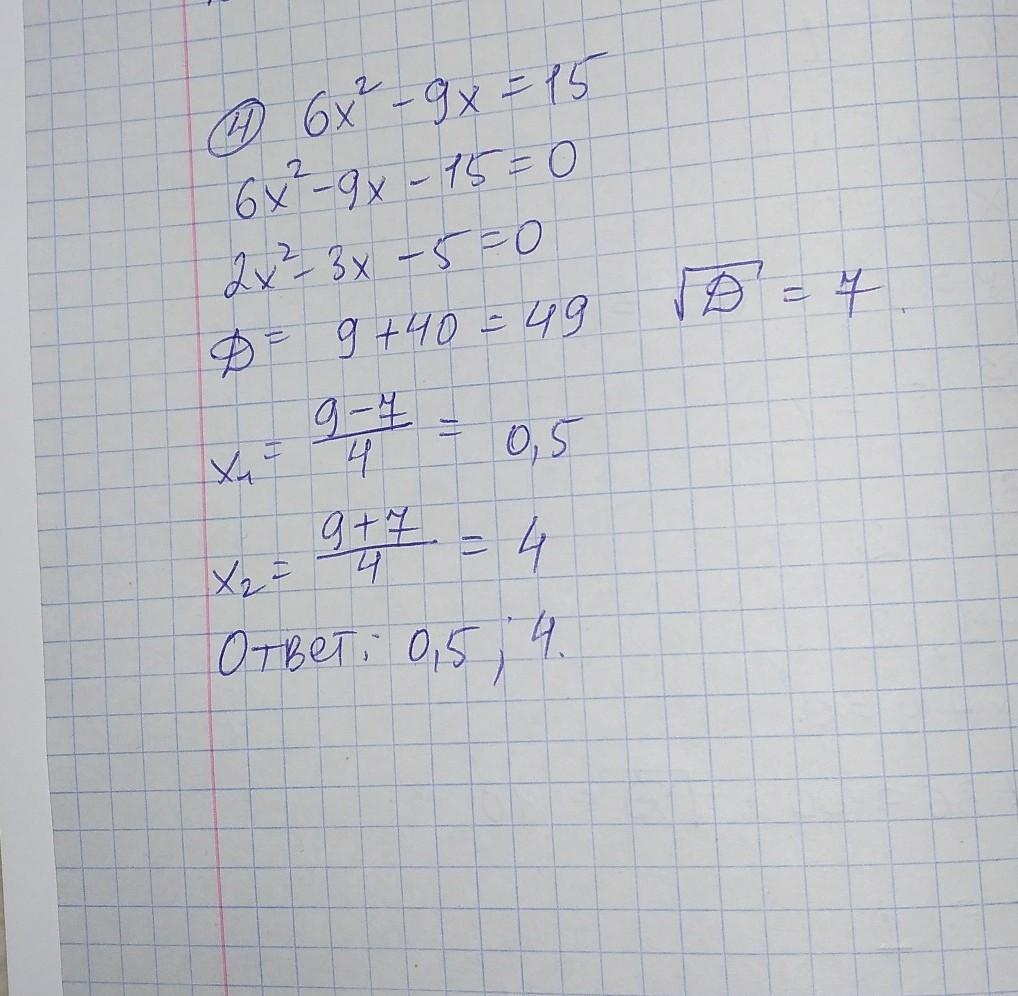 ④ 6x² - 9x = 15
6x² - 9x - 15 = 0
2x² - 3x - 5 = 0
D = 9 + 40 = 49 √D = 7.
x₁ = (9 - 7)/4 = 0,5
x₂ = (9 + 7)/4 = 4
Ответ: 0,5 ; 4.